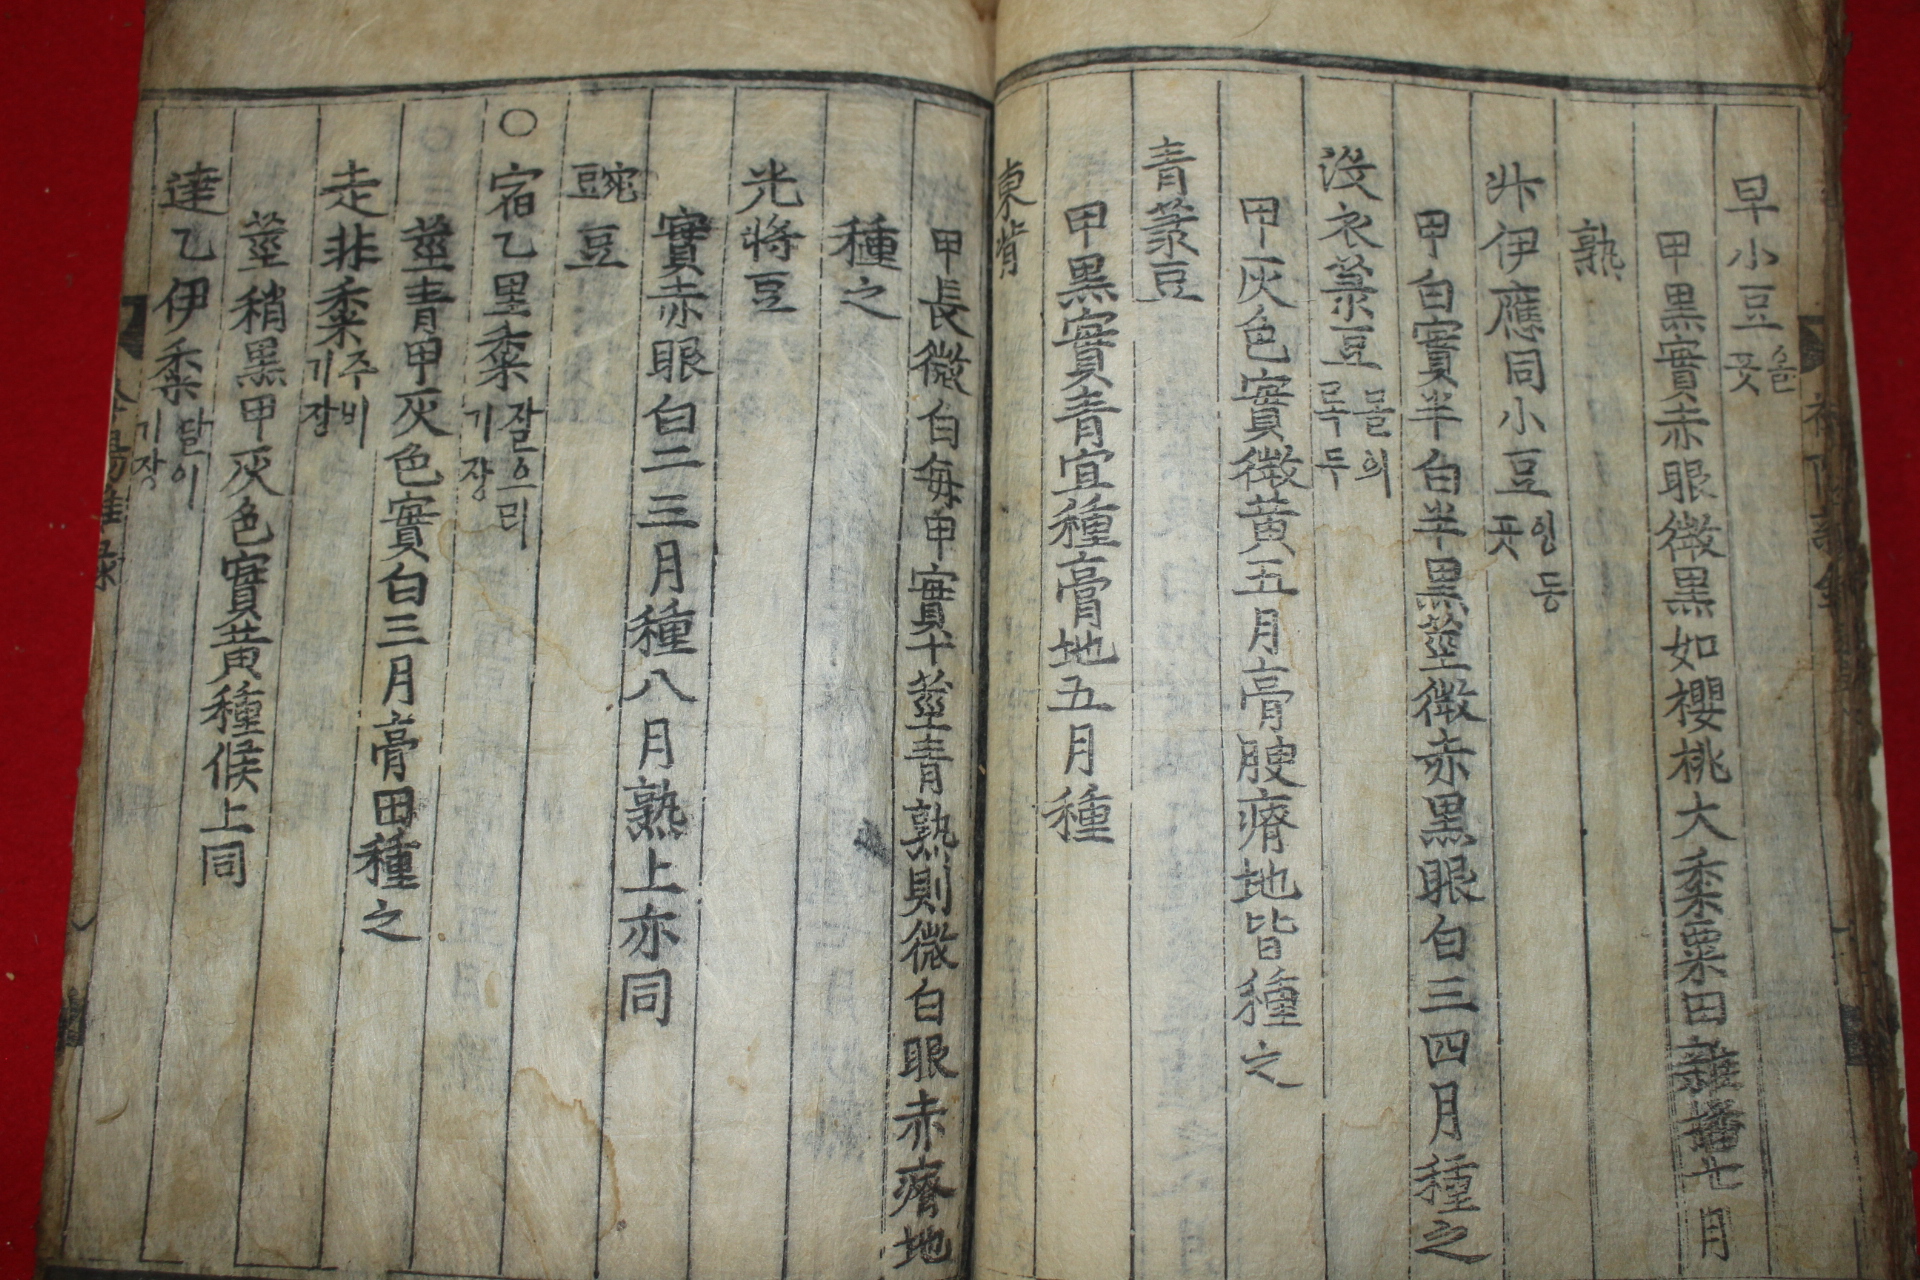 早小豆 올풋
甲黑實赤眼微黑如櫻桃大黍粟田雜播七月
熟
伊應同小豆 잉동풋
甲白實半白半黑莖微赤黑眼白三四月種之
沒衣菉豆 몰의록두
甲灰色實微黃五月膏腴瘠地皆種之
青菉豆
甲黑實青宜種膏地五月種
東背
甲長微白每甲實十莖青熟則微白眼赤瘠地
種之
光將豆
實赤眼白二三月種八月熟上亦同
豌豆
○宿乙里黍 잘으리기쟝
莖青甲灰色實白三月膏田種之
走非黍 주비기쟝
莖稍黑甲灰色實黃種候上同
達乙伊黍 달이기쟝
衿陽雜錄